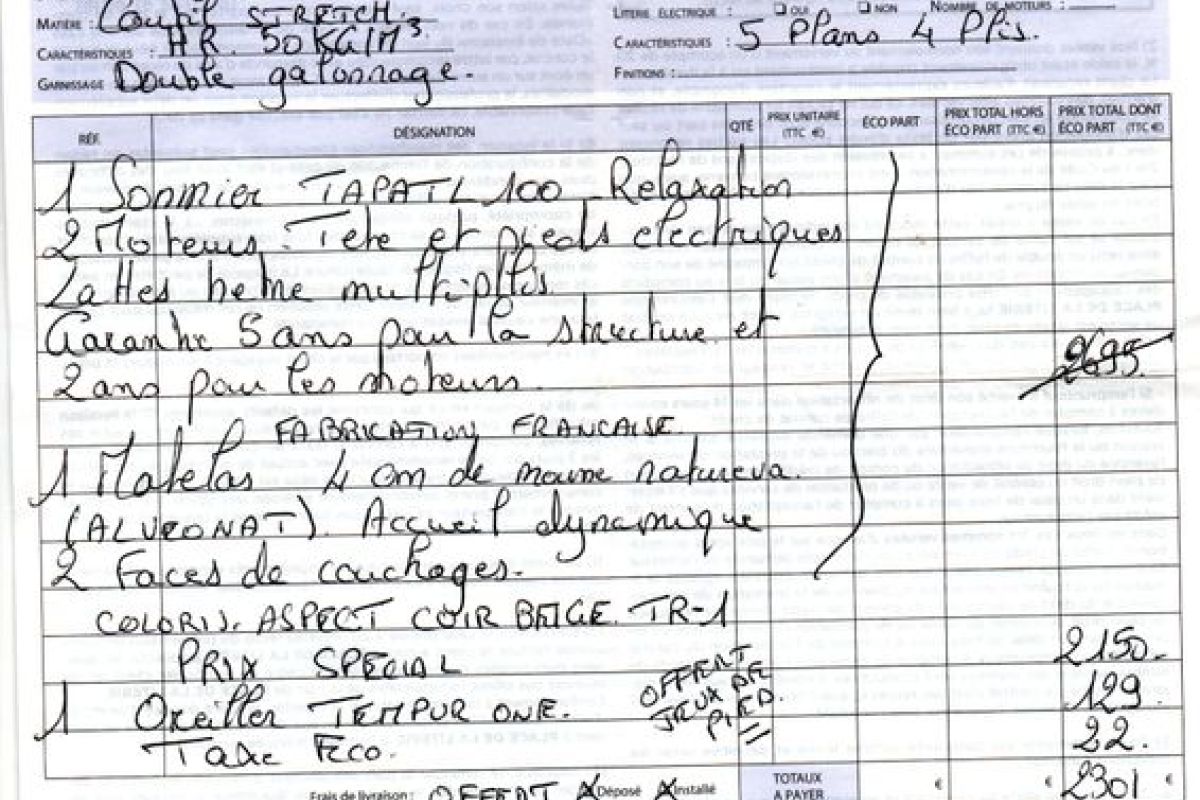 MATIÈRE : Coutil STRETCH.
CARACTÉRISTIQUES : HR. 50KG/M³
GARNISSAGE Double galonnage.
LITERIE ÉLECTRIQUE : OUI NON NOMBRE DE MOTEURS :
CARACTÉRISTIQUES : 5 Plans 4 Plis.
FINITIONS :
RÉF. DÉSIGNATION QTÉ PRIX UNITAIRE (TTC €) ÉCO PART PRIX TOTAL HORS ÉCO PART (TTC €) PRIX TOTAL DONT ÉCO PART (TTC €)
1 Sommier TAPATL 100 Relaxation
2 Moteurs. Tete et pieds electriques
Lattes heme multiplis.
Garantie 5 ans pour la structure et
2 ans pour les moteurs. 2695
FABRICATION FRANCAISE.
1 Matelas 4 cm de mousse natureva
(ALVEONAT). Accueil dynamique
2 Faces de couchages.
COLORIS. ASPECT CUIR BEIGE. TR-1
PRIX SPECIAL 2150.
1 Oreiller TEMPUR ONE. 129.
OFFERT JEUX DE PIED.
Taxe Eco. 22.
Frais de livraison : OFFERT Déposé Installé TOTAUX À PAYER € € 2301 €